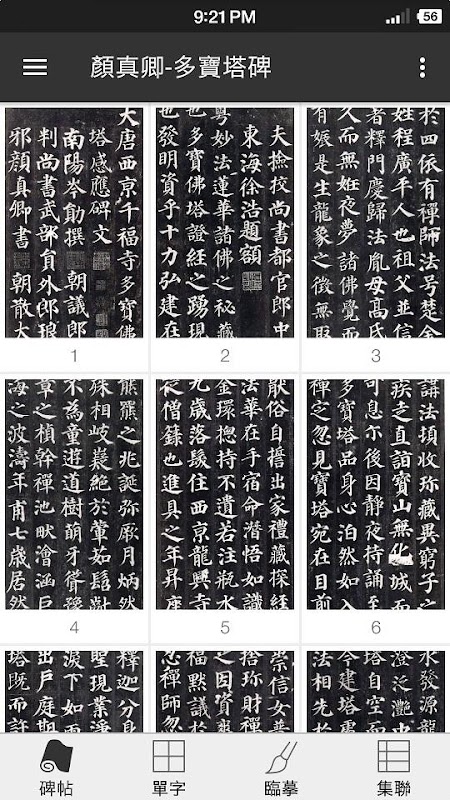 9:21 PM
56
顏真卿-多寶塔碑
大唐西京千福寺多寶佛
塔感應碑文
南陽岑勛撰 朝議郎
判尚書武部員外郎琅
邪顏真卿書 朝散大
1
夫撿挍尚書都官郎中
東海徐浩題額
粵妙法蓮華諸佛之秘藏
也多寶佛塔證經之踴現
也發明資乎十力弘建在
2
於四依有禪師法号楚金
姓程廣平人也祖父並信
著釋門慶歸法胤母高氏
久而無姙夜夢諸佛覺而
有娠是生龍象之徵無取
3
熊羆之兆誕弥厥月炳然
殊相岐嶷絕於葷茹髫齓
不為童遊道樹萌牙聳豫
章之楨幹禪池畎澮涵巨
海之波濤年甫七歲居然
4
猒俗自誓出家禮藏探經
法華在手宿命潛悟如識
金環揔持不遺若注瓶水
九歲落髮住西京龍興寺
從僧籙也進具之年昇座
5
講法頓收珎藏異窮子之
疾走直詣寶山無化城而
可息尒後因靜夜持誦至
多寶塔品身心泊然如入
禪定忽見寶塔宛在目前
6
釋迦分身
聖現業淨
淚下如雨
出戶庭期
塔既而許
崇信女普
捨珎財禪
之因資爽
福黙議於
忽禪師忽
水發源龍
澄泛灩中
塔自空而
今建塔處
法相先於
碑帖
單字
臨摹
集聯